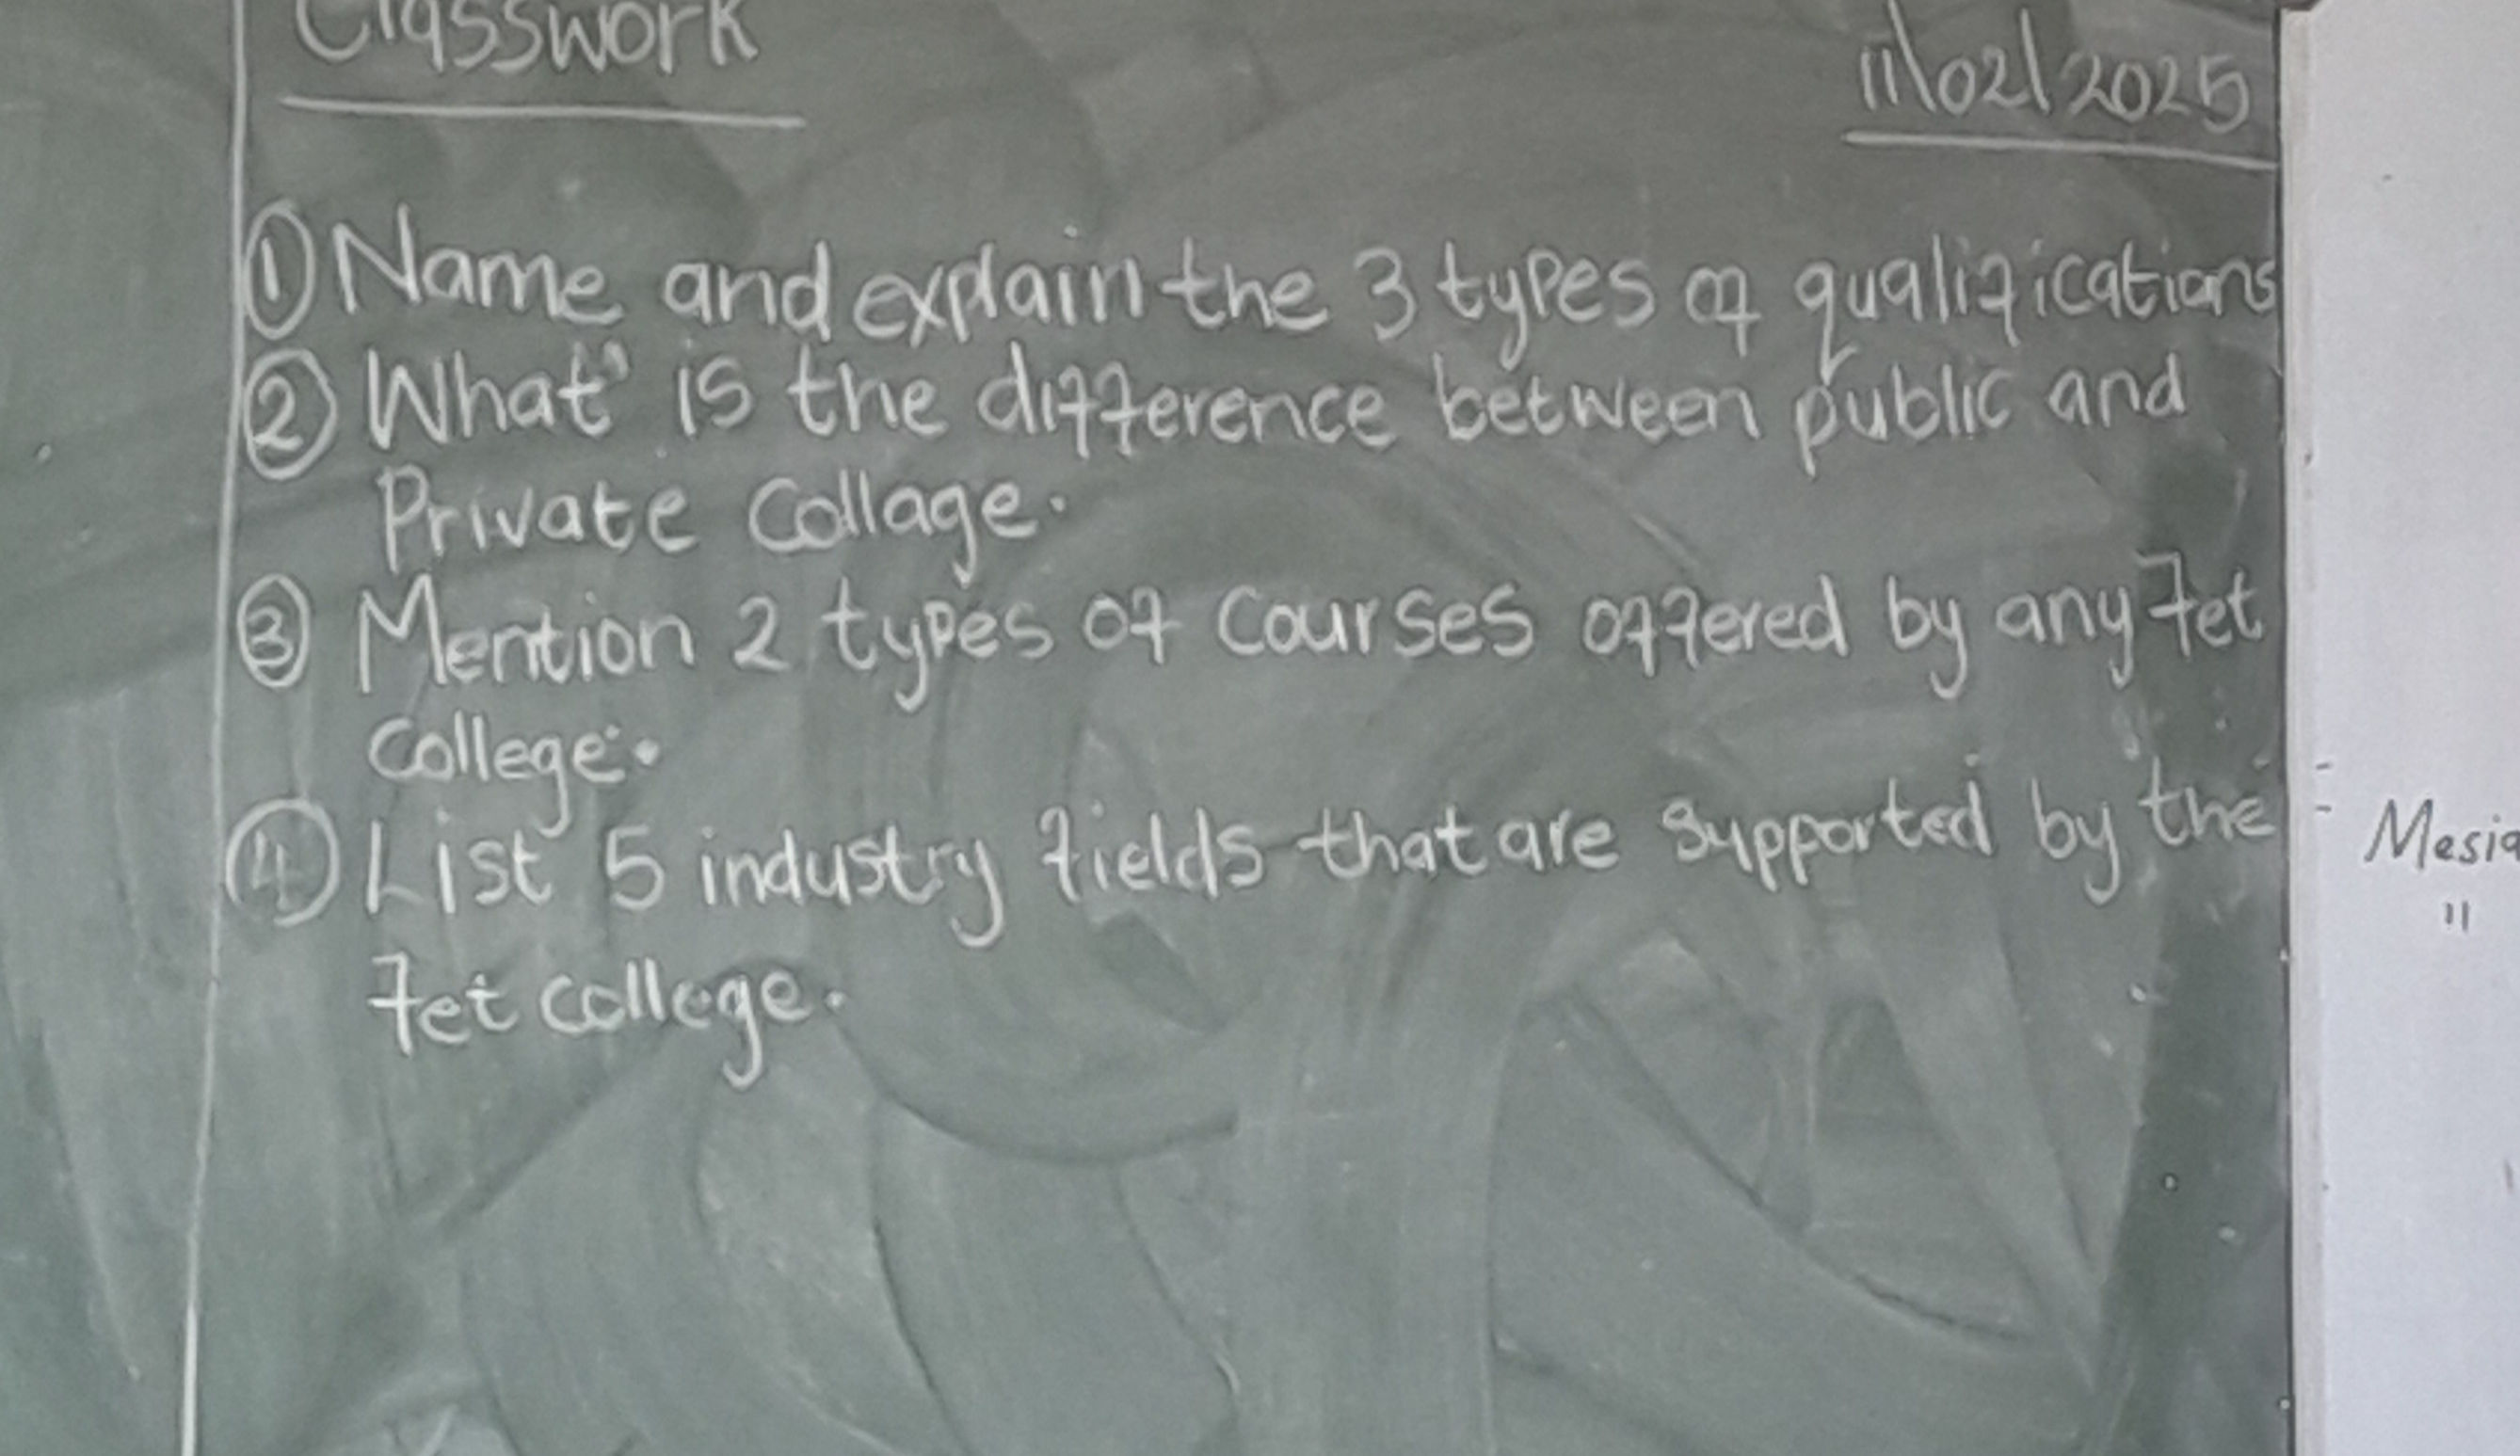 Classwork
11\02\2025
① Name and explain the 3 types of qualifications
② What is the difference between public and
Private Collage.
③ Mention 2 types of courses offered by any Fet
College.
④ List 5 industry fields that are supported by the
Fet college.
Mesia
"